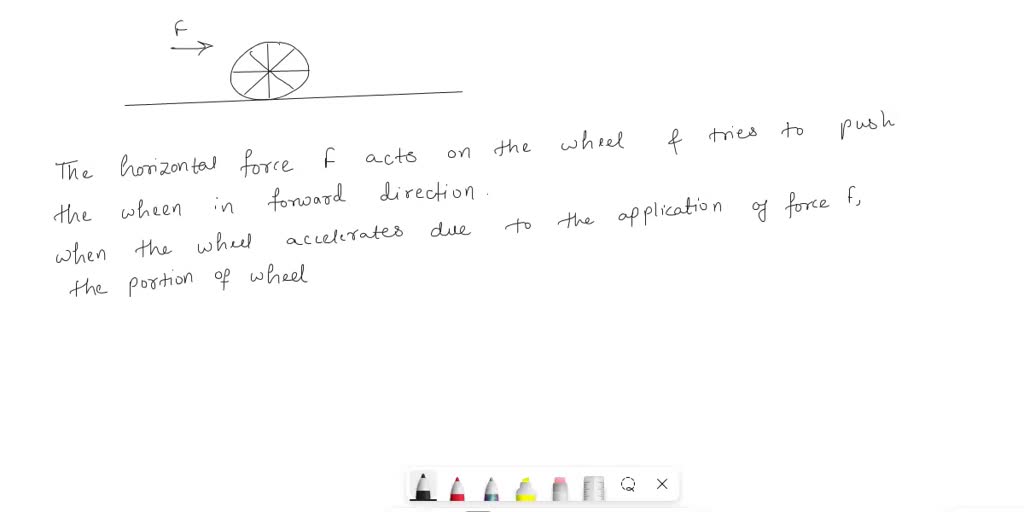 F
The horizontal force F acts on the wheel & tries to push
the wheen in forward direction.
when the wheel accelerates due to the application of force F,
the portion of wheel